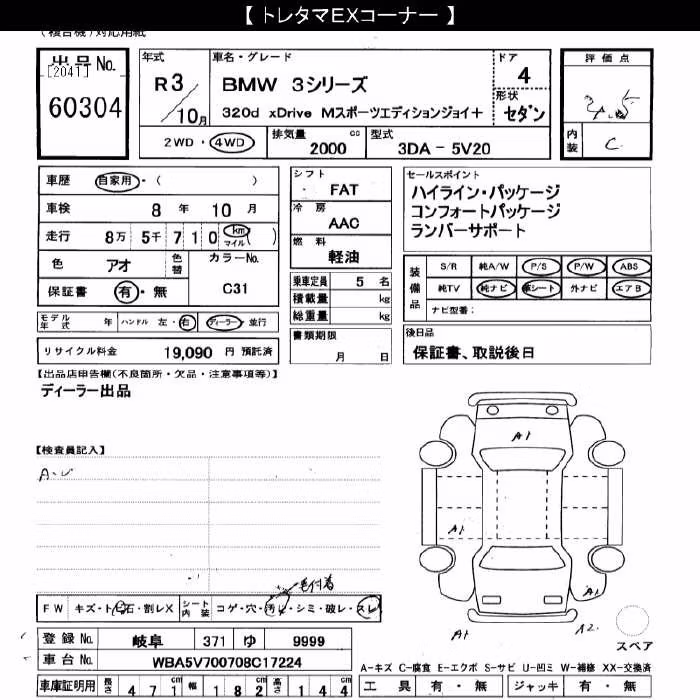 【 トレタマEXコーナー 】
(複合機)対応用紙
出品No.
[2041]
60304
年式
R3／10月
車名・グレード
BMW 3シリーズ
320d xDrive Mスポーツエディションジョイ+
ドア
4
形状
セダン
評価点
内装
C
2WD ・ 4WD
排気量
2000 cc
型式
3DA - 5V20
車歴 自家用・( )
車検 8 年 10 月
走行 8万 5千 7 1 0 (km マイル)
色 アオ
色替
カラーNo.
C31
保証書 有・無
モデル年式 年 ハンドル 左・右 ディーラー・並行
リサイクル料金 19,090 円 預託済
シフト
FAT
冷房
AAC
燃料
軽油
乗車定員 5 名
積載量 kg
総重量 kg
書類期限
月 日
セールスポイント
ハイライン・パッケージ
コンフォートパッケージ
ランバーサポート
装備品
S/R 純A/W P/S P/W ABS
純TV 純ナビ 革シート 外ナビ エアB
ナビ型番:
後日品
保証書、取説後日
【出品店申告欄(不良箇所・欠品・注意事項等)】
ディーラー出品
【検査員記入】
A-U
A1
A1
A1
A1
A2
スペア
毛付着
FW キズ・ト 飛石・割レX
シート内装 コゲ・穴・汚レ・シミ・破レ・スレ
登録 No. 岐阜 371 ゆ 9999
車台 No. WBA5V700708C17224
車庫証明用 長さ 4 7 1 cm 幅 1 8 2 cm 高さ 1 4 4 cm
A-キズ C-腐食 E-エクボ S-サビ U-凹ミ W-補修 XX-交換済
工具 有・無 ジャッキ 有・無